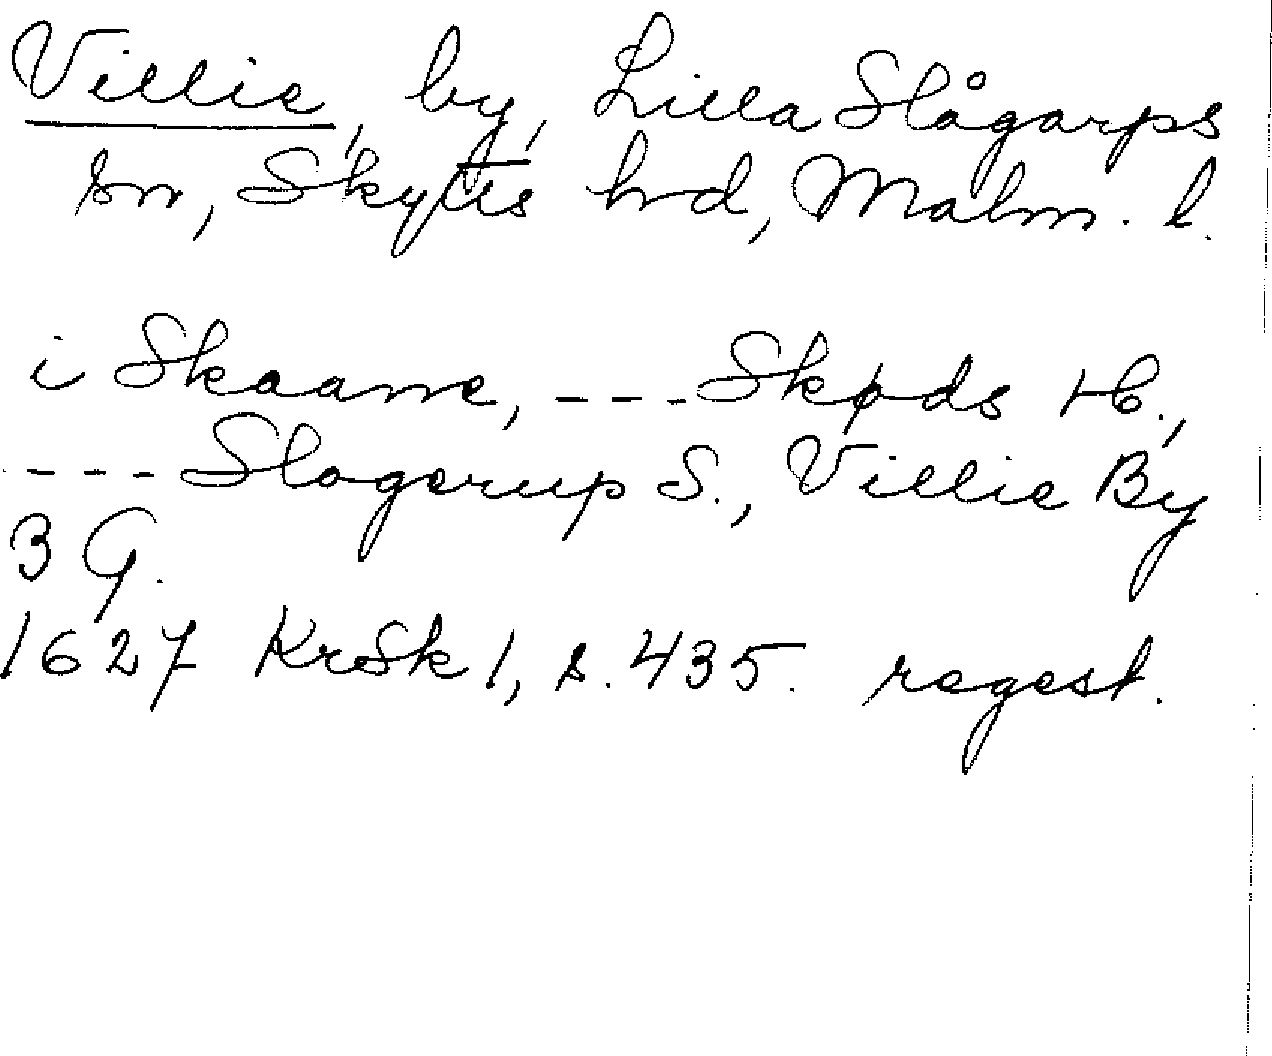 Villie, by, Lilla Slågarps
sn, Skytts hrd, Malm. l.
i Skaanne, --- Skøds H.,
---- Slagerup S., Villie By
3 G.
1627 KrSk 1, s. 435. regest.